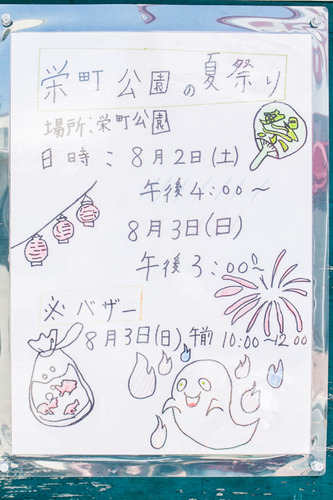 栄町公園の夏祭り
場所:栄町公園
日時:8月2日(土)
午後4:00〜
8月3日(日)
午後3:00〜
祭
※バザー
8月3日(日)午前10:00〜12:00